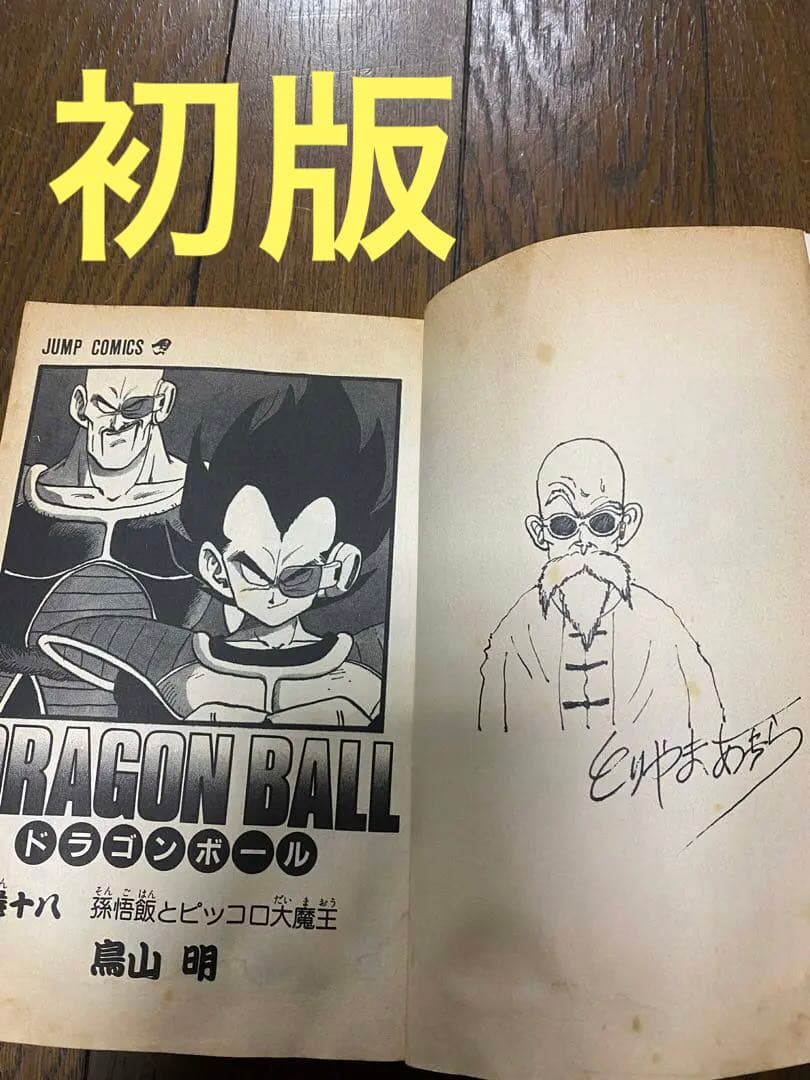 初版
JUMP COMICS
DRAGON BALL
ドラゴンボール
巻十八 孫悟飯とピッコロ大魔王
そんごはん だいまおう
鳥山 明
とりやまあきら